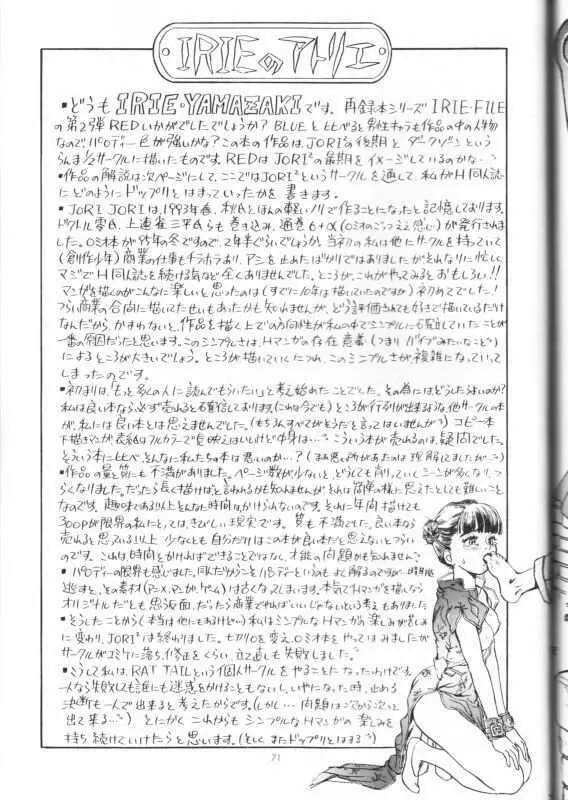 IRIEのアトリエ
・どうもIRIE・YAMAZAKIです。再録本シリーズIRIE-FILE
の第2弾REDいかがでしたでしょうか?BLUEと比べると男性キャラも作品の中の人物
なのでパロディー色が強いかな?この本の作品は、JORI²の後期とダークゾーンという
らんま½サークルに描いたものです。REDはJORI²の最期をイメージしているのかな…
・作品の解説は次ページにして、ここではJORI²というサークルを通して、私がH同人誌
にどのようにドップリとはまっていったかを書きます。
・JORI JORIは、1993年春、
とほんの軽いノリで作ることになったと記憶しております。
ドクトル零氏、上連雀三平氏らも巻き込み、通巻6+α(0ミオのごっつええ感じ)が発行されま
した。0ミオが95年の冬ですので、2年半ぐらいでしょうか。当初の私は他にサークルを持っていて
(創作少年)商業の仕事もチラホラあり、アシを止めたばかりではありましたがそれなりに忙しく
マジでH同人誌を続ける気など全くありませんでした。ところが、これがやってみるとおもしろい!!
マンガを描くのがこんなに楽しいと思ったのは(すでに10年は描いていたのですが)初めてでした!
つらい商業の合間に描いてたせいもあったかも知れませんが、どう評価されても好きで描いているだけ
なんだから、かまわないと、作品を描く上での方向性が私の中でシンプルに確立していたことが
一番の原因だったと思います。このシンプルさは、Hマンガの存在意義(つまりバイブみたいなこと)
によるところが大きいでしょう。ところが描いていくにつれ、このシンプルさが複雑になっていって
しまったのです。
・初まりは、「もっと多くの人に読んでもらいたい」と考え始めたことでした。その為にはどうしたらよいのか?
私は良い本なら必ず売れると確信しております。(これは今でも)ところが行列が出来るような他サークルの本
が、私には良い本とは思えませんでした。(もちろんすべてがそうだと言ってはいませんが)コピー本
下描きマンガ、表紙はフルカラーで見映えはいいけど中身は…こういう本が売れるのは、疑問でした。
そういう本に比べ、そんなに私たちの本は悪いのか…?(まあ悪い所があったのは理解してましたが…)
・作品の量と質にも不満がありました。ページ数が少ないと、どうしても削っていくシーンが多くなり、つ
らくなりました。だったら長く描けばと言われるかも知れませんが、それは簡単の様に思えたとしても難しいこと
なのです。趣味である以上そんなに時間はかけられないのです。それに年間描けても
300Pが限界の私にとっては、きびしい現実です。質も不満でした。良い本なら
売れると思っている以上少なくとも自分だけはこの本が良い本だと思えないとつらい
のです。これは時間をかければできることではなく、才能の問題かも知れません?
・パロディーの限界も感じました。同人だからこそパロディーというのもよく解るのですが、一時期
逃すと、その素材(アニメ、マンガ、ゲーム)は古くなってしまいます。本気でHマンガを描くなら
オリジナルだとも思う反面、だったら商業でやればいいじゃないという考えもありました
・そうしたことから(本当は他にもあるけど…)私はシンプルなHマンガが、楽しみが苦しみ
に変わり、JORI²は終わりました。七カリロを変え、0ミオ本をやってはみましたが
サークルがコミケに落ち、修正をくらい、立て直しも失敗しました。
・こうして私は、RAT TAILという個人サークルをやることになったわけです。
一人なら失敗しても誰にも迷惑をかけることもないし、いやになった時、止める
決断も一人で出来ると考えたからです。(しかし…問題は次から次へと
出て来る…)とにかくこれからもシンプルなHマンガの楽しみを
持ち続けていけたらと思います。(そして、またドップリとはまる)
71